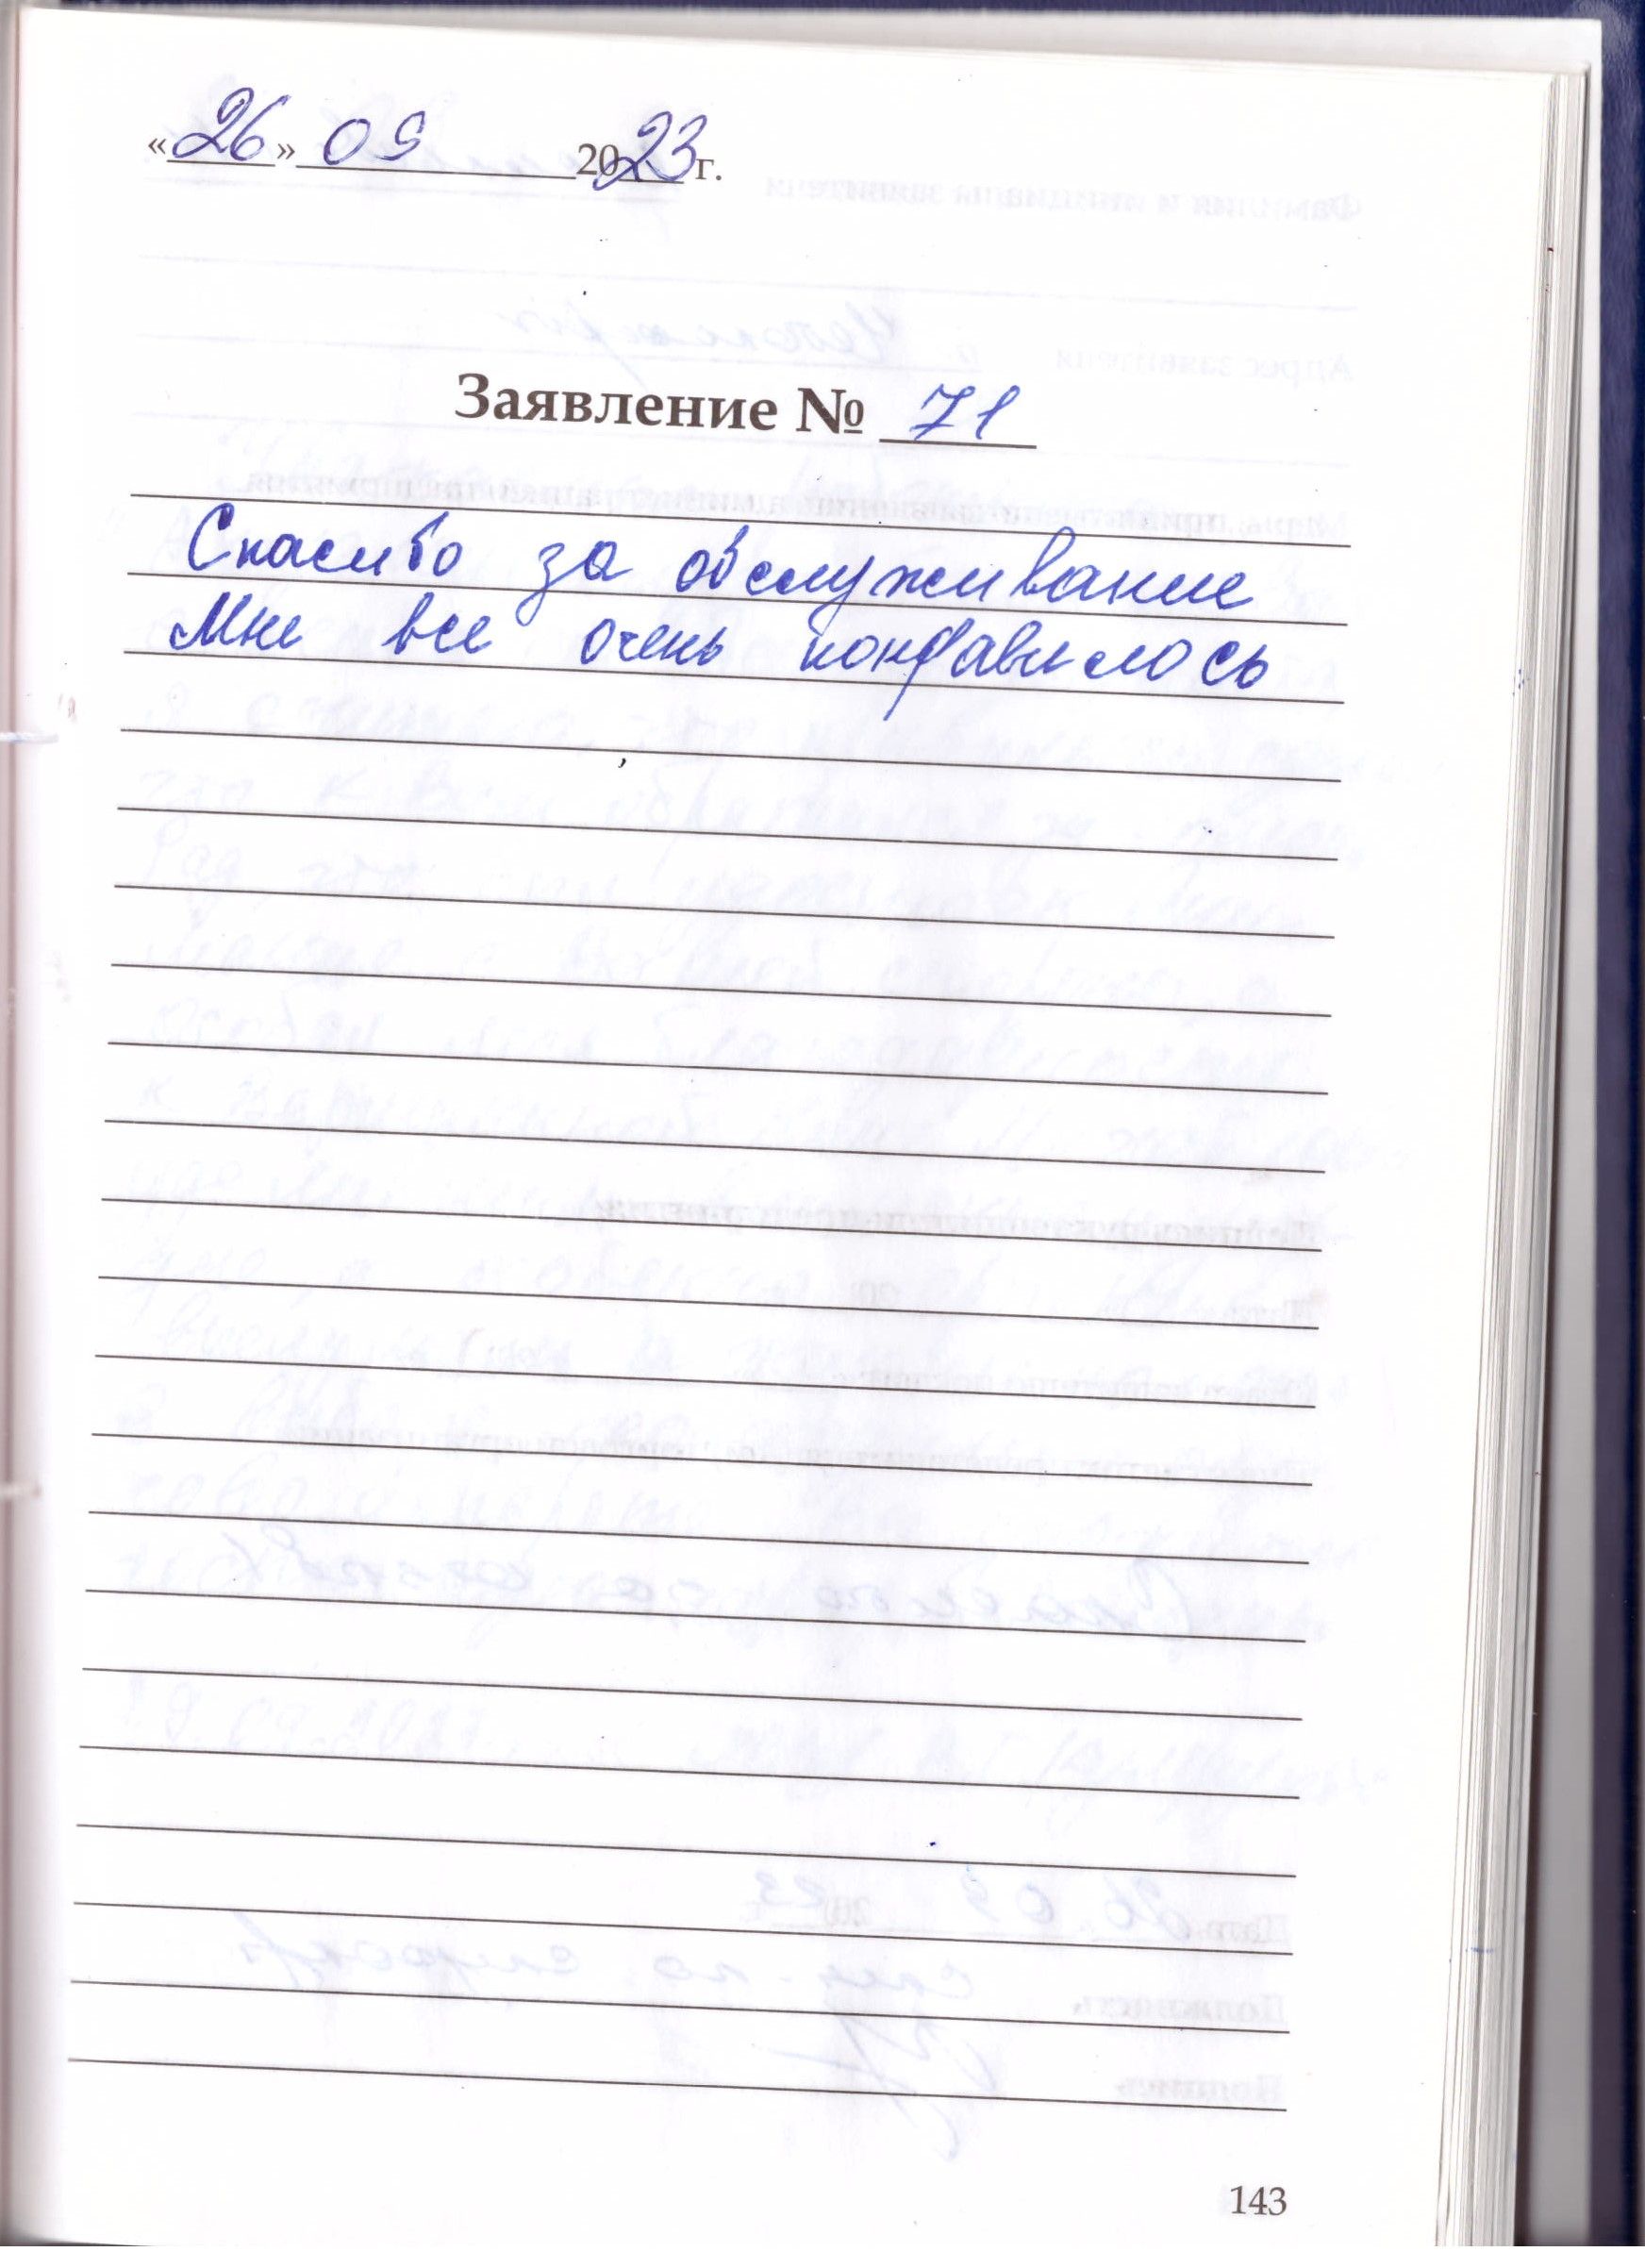 «26» 09 2023 г.
Заявление № 71
Спасибо за обслуживание
Мне все очень понравилось
143